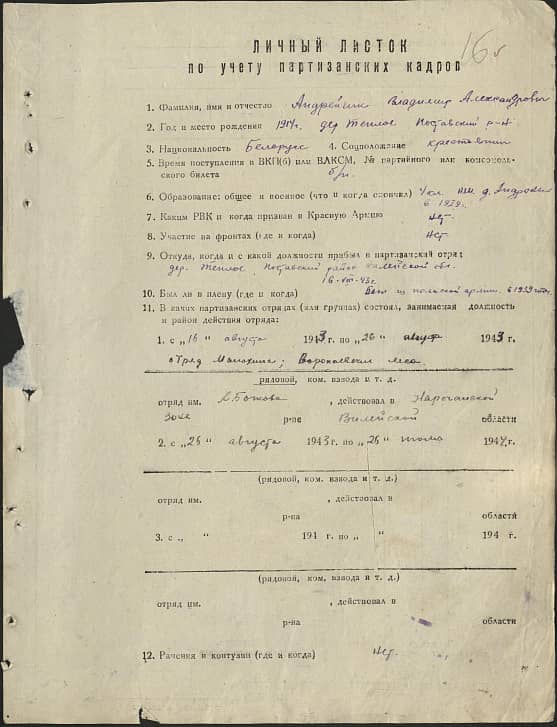 ЛИЧНЫЙ ЛИСТОК
16
по учету партизанских кадров
1. Фамилия, имя и отчество Андрейчик Владимир Александрович
2. Год и место рождения 1914г. дер Теплое Поставский р-н
3. Национальность Белорусс 4. Соцположение крестьянин
5. Время поступления в ВКП(б) или ВЛКСМ, № партийного или комсомоль-
ского билета б/п.
6. Образование: общее и военное (что и когда окончил) 4 кл д.
в 1929г.
7. Каким РВК и когда призван в Красную Армию нет.
8. Участие на фронтах (где и когда) нет
9. Откуда, когда и с какой должности прибыл в партизанский отряд
дер. Теплое, Поставский район Вилейской обл.
16-VIII-43г.
10. Был ли в плену (где и когда) из польской армии в 1939 году
11. В каких партизанских отрядах (или группах) состоял, занимаемая должность
и район действия отряда:
1. с „16 " августа 1943 г. по „26 " август 1943 г.
отряд Манохина; Воропаевский леса
(рядовой, ком. взвода и т. д.
отряд им. , действовал в Нарочанской
зоне р-не Вилейской области
2. с „26 " августа 1943 г. по „26 " 1944 г.
(рядовой, ком. взвода и т. д.)
отряд им. , действовал в
р-на области
3. с „ " 194 г. по „ " 194 г.
(рядовой, ком. взвода и т. д.)
отряд им. , действовал в
р-на области
12. Ранения и контузии (где и когда) нет.